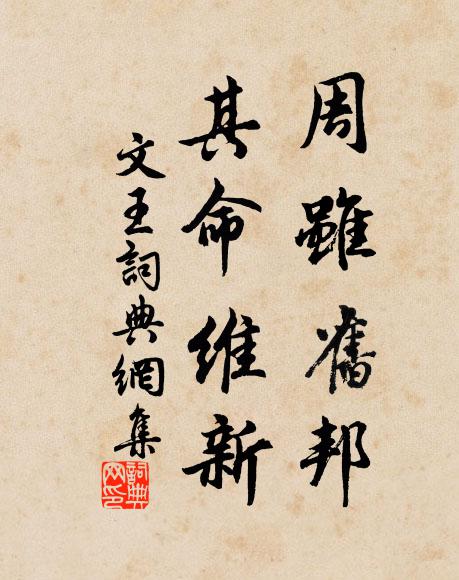 周雖舊邦
其命維新
文王詞典網集
詞典网印